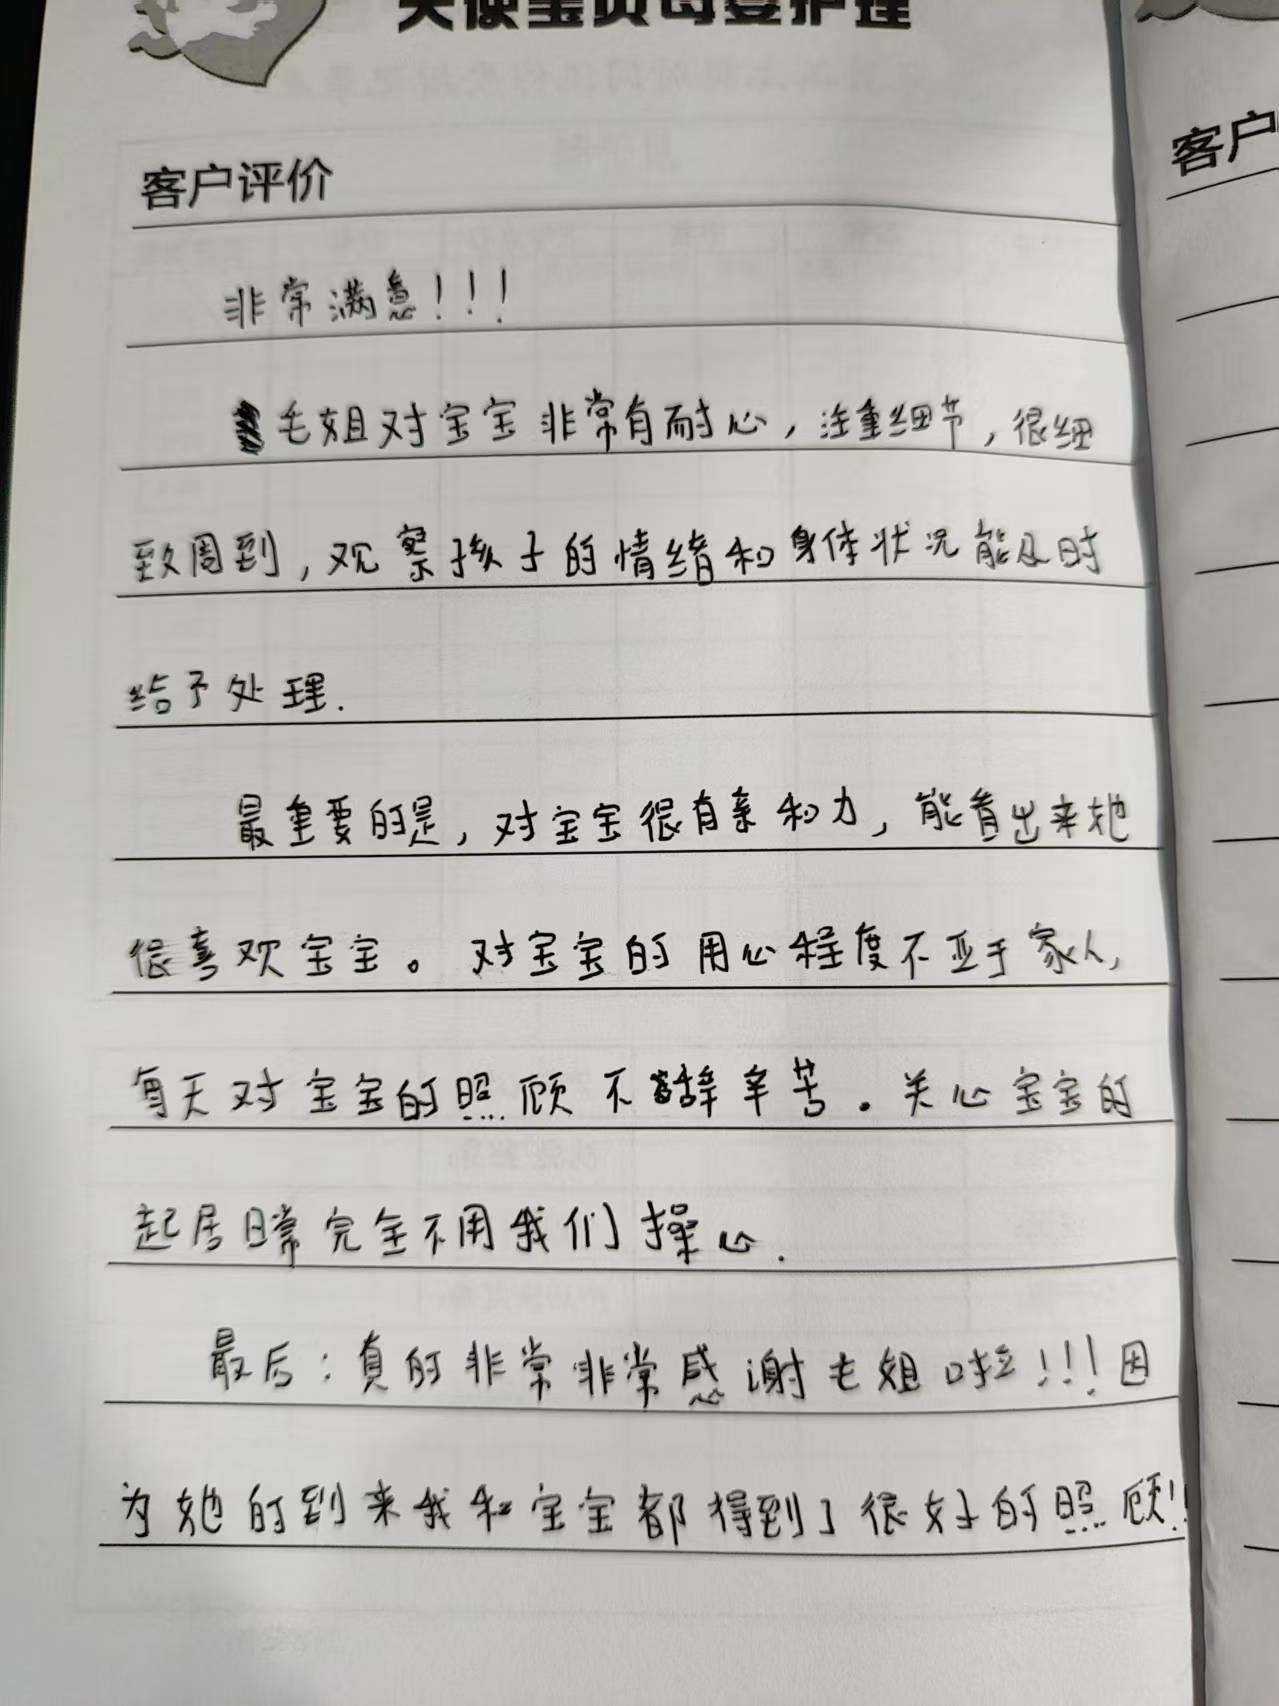 天使宝贝母婴护理
客户评价
非常满意！！！
毛姐对宝宝非常有耐心，注重细节，很细
致周到，观察孩子的情绪和身体状况能及时
给予处理.
最重要的是，对宝宝很有亲和力，能看出来她
很喜欢宝宝。对宝宝的用心程度不亚于家人，
每天对宝宝的照顾不辞辛苦。关心宝宝的
起居日常完全不用我们操心.
最后：真的非常非常感谢毛姐啦！！！因
为她的到来我和宝宝都得到了很好的照顾！！
客户